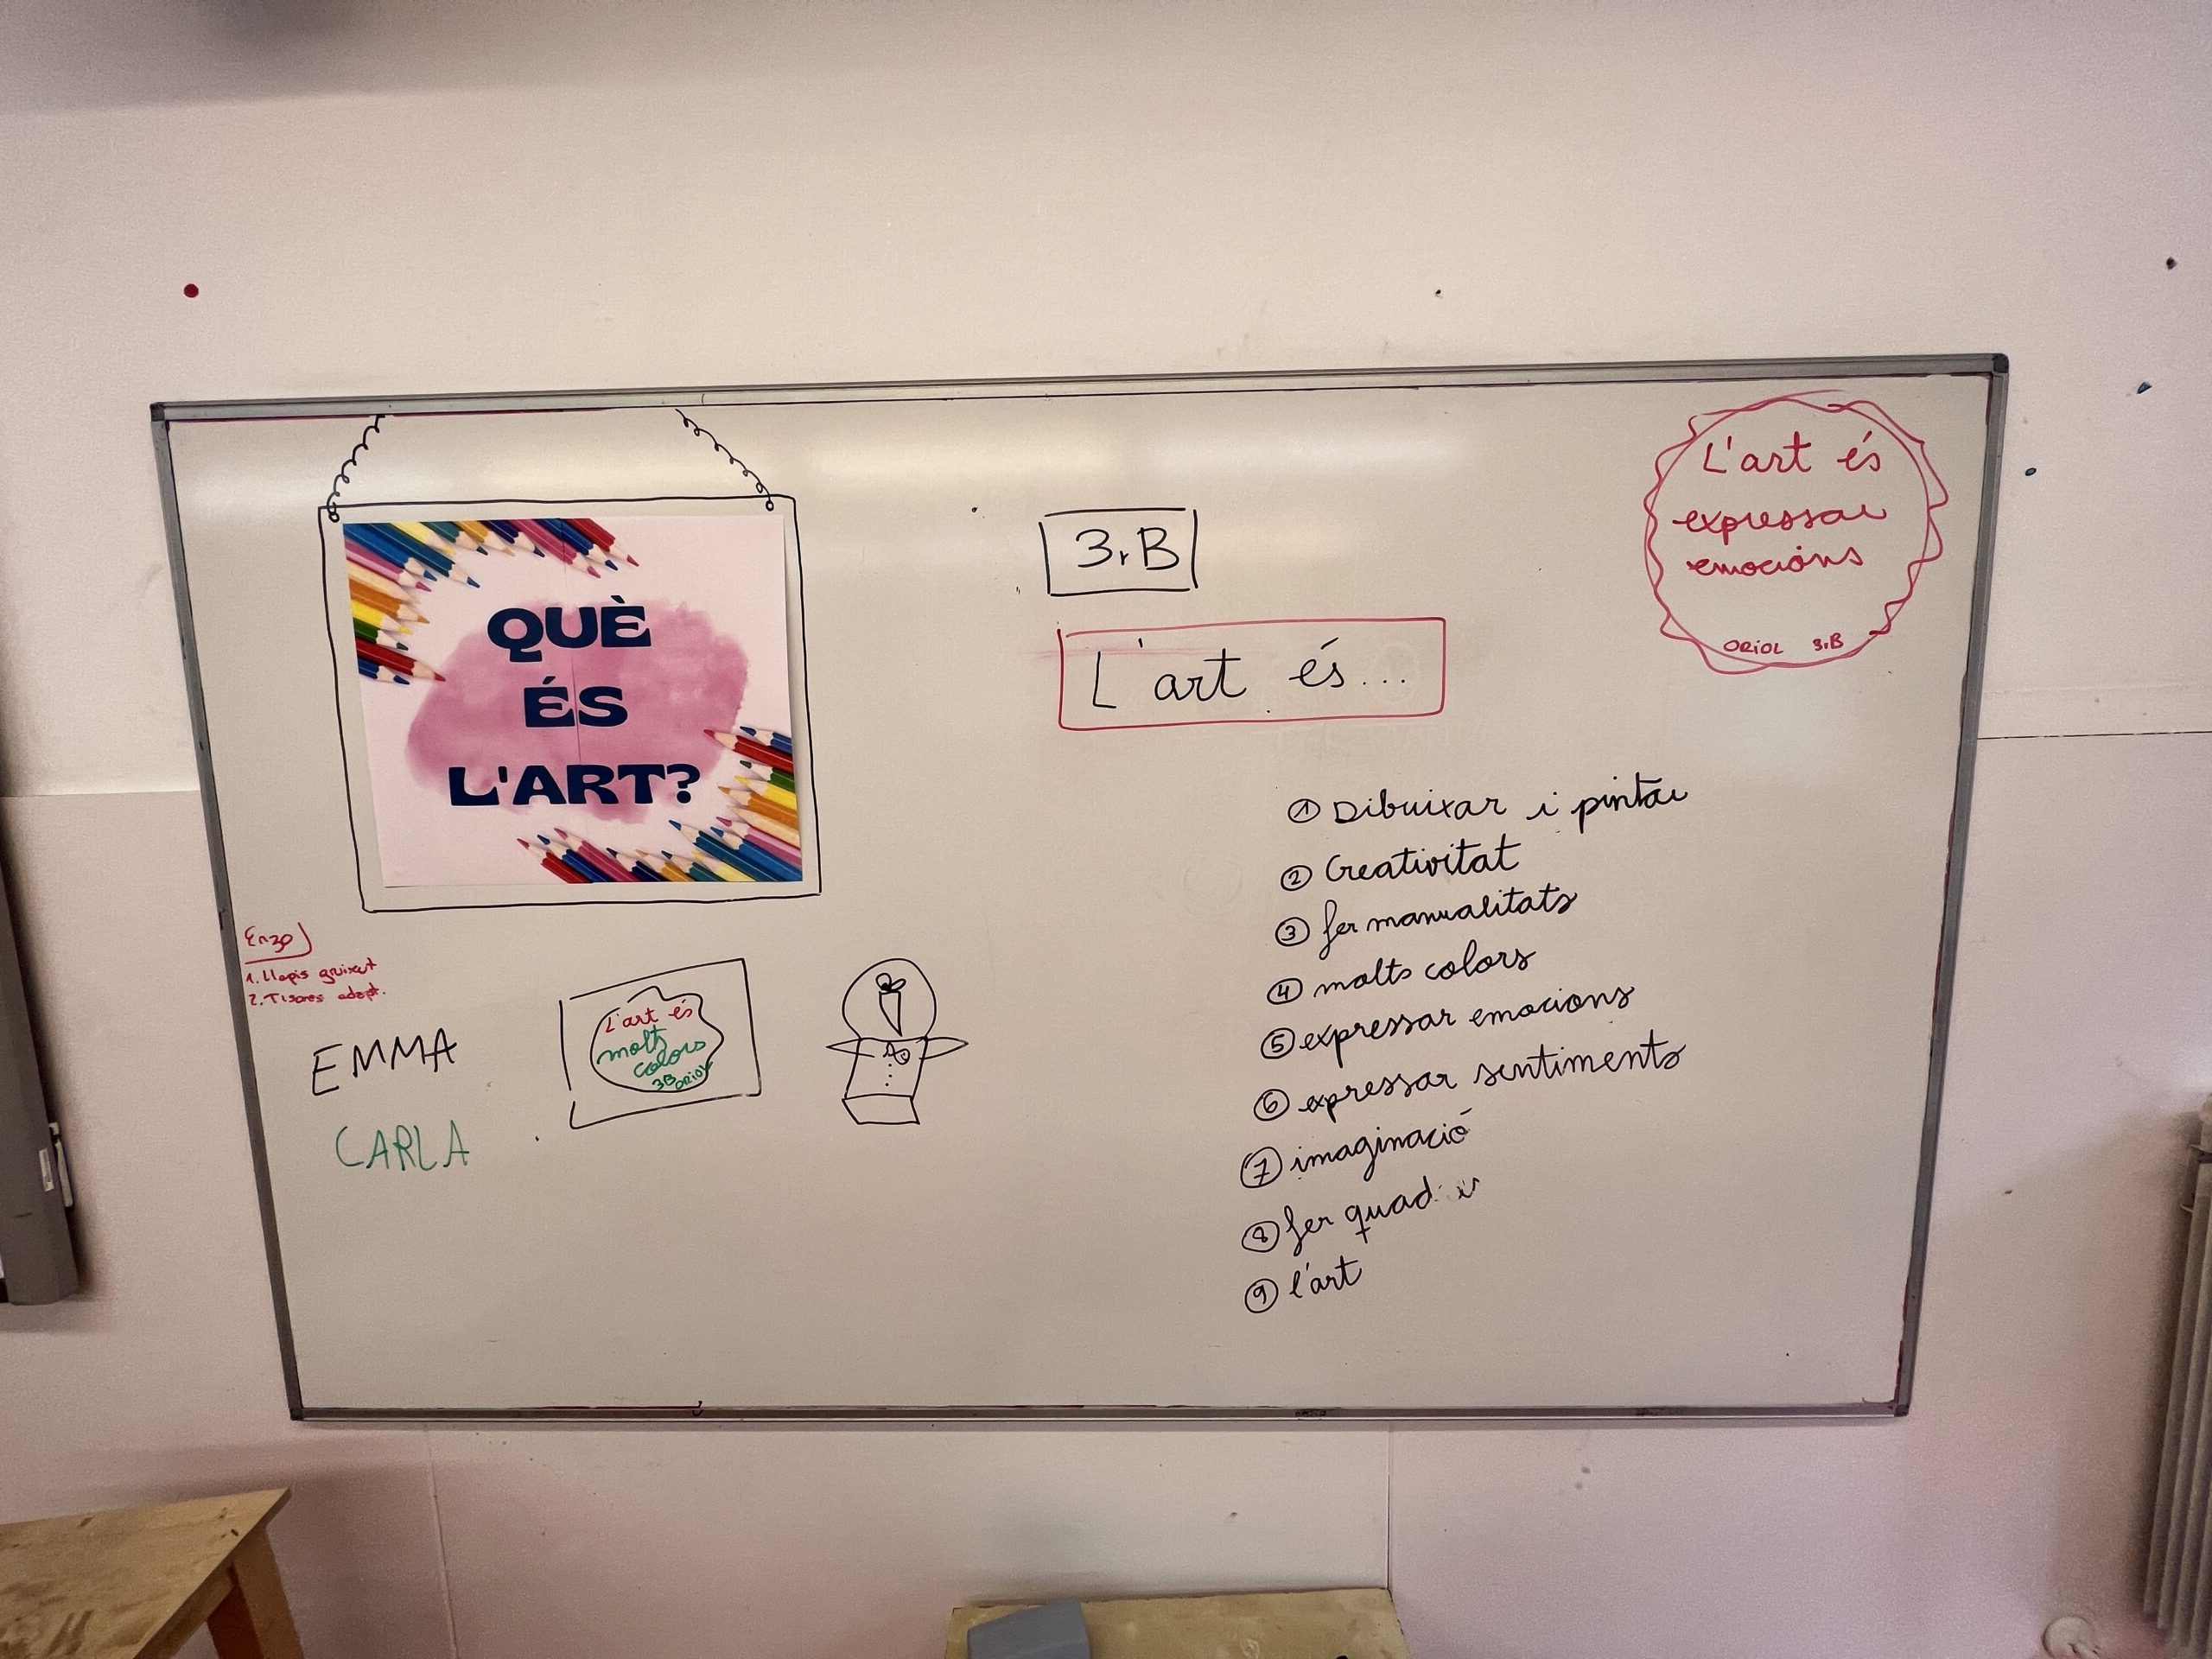 QUÈ
ÉS
L'ART?
3r B
L'art és...
L'art és
expressar
emocións
ORIOL 3rB
1 Dibuixar i pintar
2 Creativitat
3 fer manualitats
4 molts colors
5 expressar emocions
6 expressar sentiments
7 imaginació
8 fer
9 l'art
Enzo
1. Llapis gruixut
2. Tisores adapt.
EMMA
CARLA
L'art és
molts
colors
3B ORIOL